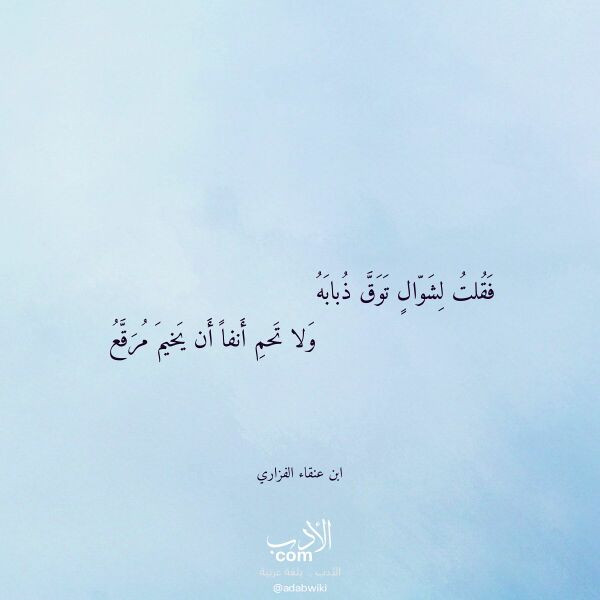 فَقُلتُ لِشَوّالٍ تَوَقَّ ذُبابَهُ
وَلا تَحمِ أَنفاً أَن يَخيمَ مُرَقَّعُ
ابن عنقاء الفزاري
الأدب
com
الأدب .. بلغة عربية
@adabwiki